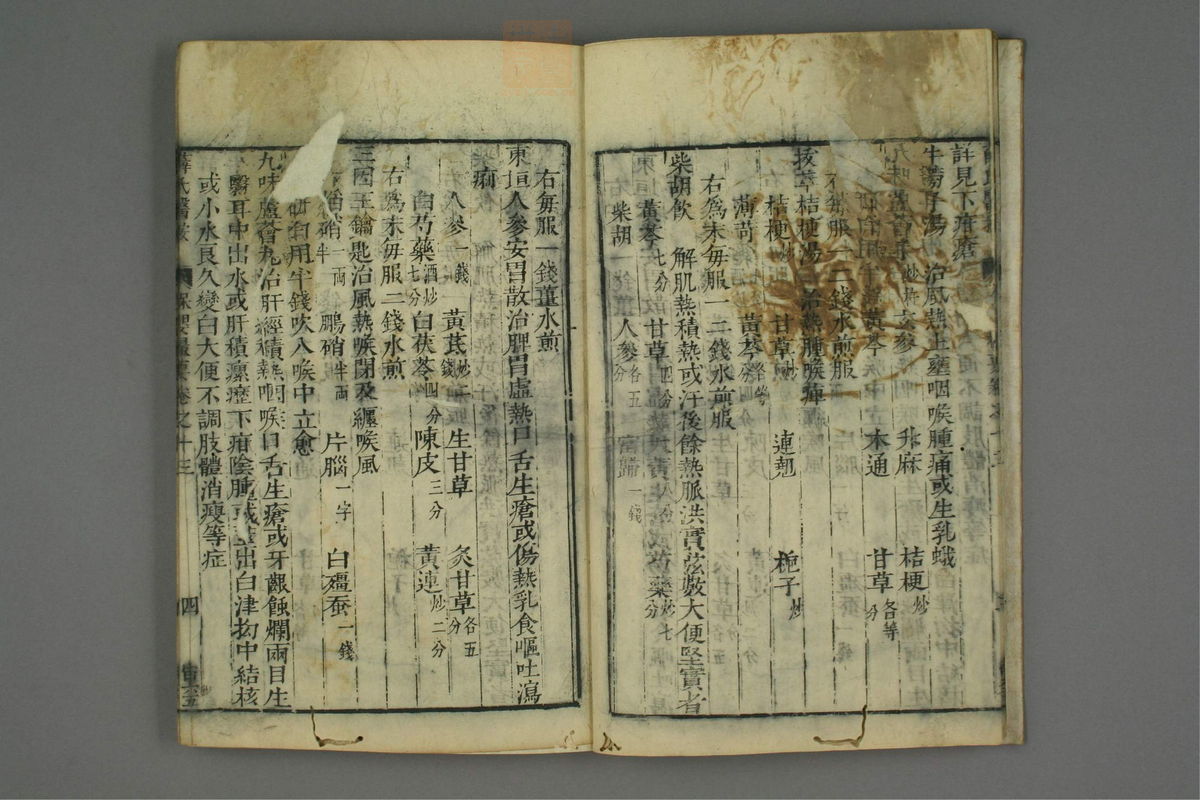 詳見下疳瘡
牛蒡子湯 治風熱上壅咽喉腫痛或生乳蛾
玄參 升麻 桔梗炒
黃芩 木通 甘草各等分
右每服一二錢水煎服
拔萃桔梗湯 治熱腫喉痺
桔梗炒 甘草炒 連翹 梔子炒
薄苛 黃芩各等分
右為末每服一二錢水煎服
柴胡飲 解肌熱積熱或汗後餘熱脈洪實弦數大便堅實者
黃芩七分 甘草四分 大黃 芍藥炒七分
柴胡 人參各五分 當歸一錢
右每服一錢薑水煎
東垣人參安胃散治脾胃虛熱口舌生瘡或傷熱乳食嘔吐瀉
痢
人參一錢 黃芪炒二錢 生甘草 炙甘草各五分
白芍藥酒炒七分 白茯苓四分 陳皮三分 黃連炒二分
右為末每服二錢水煎
三因玉鑰匙治風熱喉閉及纏喉風
焰硝一兩半 鵬硝半兩 片腦一字 白殭蚕一錢
右研勻用半錢吹入喉中立愈
九味蘆薈丸治肝經積熱咽喉口舌生瘡或牙齦蝕爛兩目生
翳耳中出水或肝積瘰癧下疳陰腫或莖出白津拗中結核
或小水良久變白大便不調肢體消瘦等症
薛氏醫案 保嬰撮要卷之十三 四